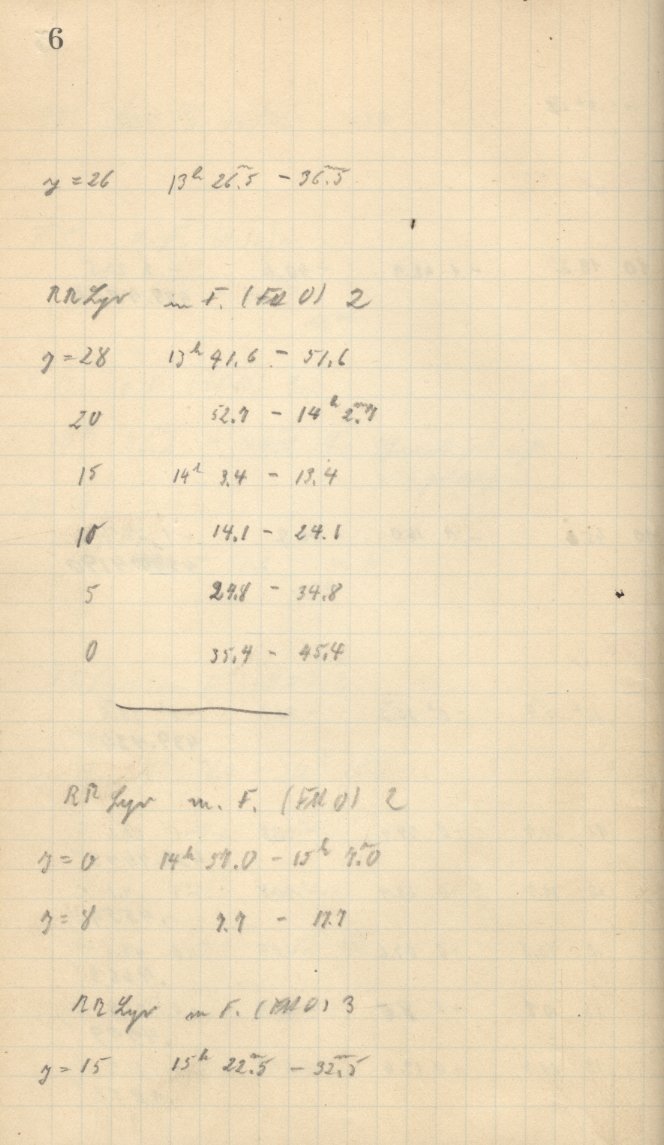 6
y = 26 13ʰ 26ᵐ.5 – 36ᵐ.5
RR Lyr m F. ( ) 2
y = 28 13ʰ 41.6 – 51.6
20 52.7 – 14ʰ 2ᵐ.7
15 14ʰ 3.4 – 13.4
10 14.1 – 24.1
5 24.8 – 34.8
0 35.4 – 45.4
RR Lyr m. F. ( ) 2
y = 0 14ʰ 57.0 – 15ʰ 7ᵐ.0
y = 8 7.7 – 17.7
RR Lyr m F. ( ) 3
y = 15 15ʰ 22ᵐ.5 – 32ᵐ.5